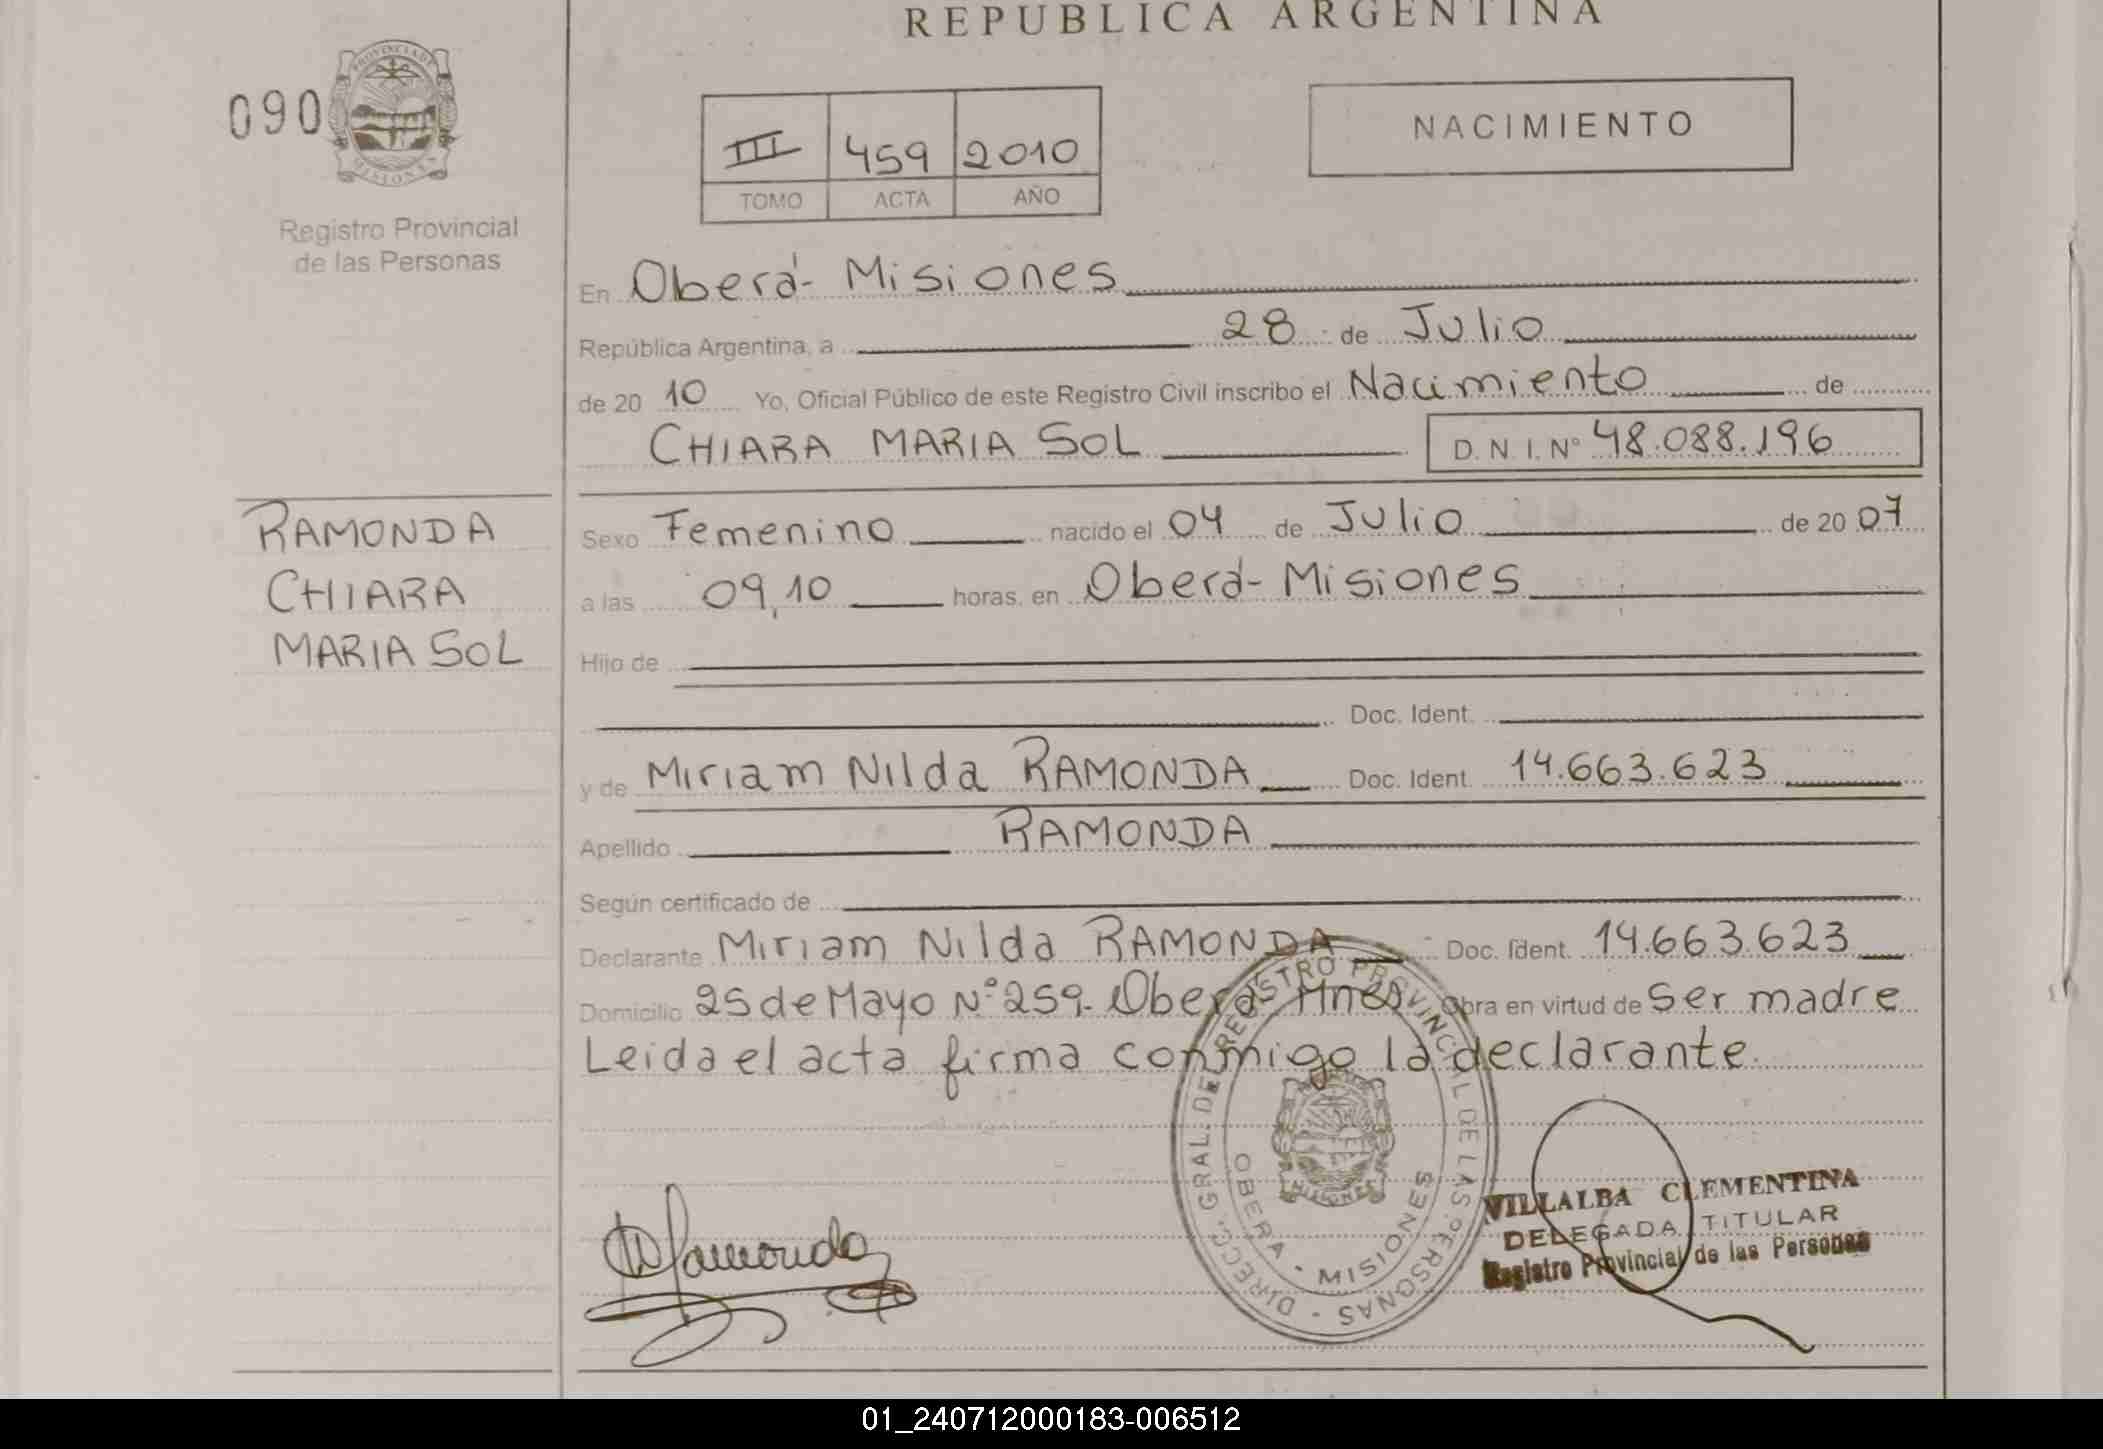 REPUBLICA ARGENTINA
090
PROVINCIA DE MISIONES
Registro Provincial
de las Personas
III 459 2010
TOMO ACTA AÑO
NACIMIENTO
En Oberá - Misiones
República Argentina, a 28 de Julio
de 20 10 Yo, Oficial Público de este Registro Civil inscribo el Nacimiento de
CHIARA MARIA SOL D. N. I. Nº 48.088.196
RAMONDA
CHIARA
MARIA SOL
Sexo Femenino nacido el 04 de Julio de 20 07
a las 09,10 horas, en Oberá - Misiones
Hijo de
Doc. Ident.
y de Miriam Nilda RAMONDA Doc. Ident. 14.663.623
Apellido RAMONDA
Según certificado de
Declarante Miriam Nilda RAMONDA Doc. Ident. 14.663.623
Domicilio 25 de Mayo Nº 259.- Oberá Mnes Obra en virtud de Ser madre
Leida el acta firma conmigo la declarante
DIRECC. GRAL. DEL REGISTRO PROVINCIAL DE LAS PERSONAS -
OBERA - MISIONES
MISIONES
Ramonda
VILLALBA CLEMENTINA
DELEGADA TITULAR
Registro Provincial de las Personas
01_240712000183-006512